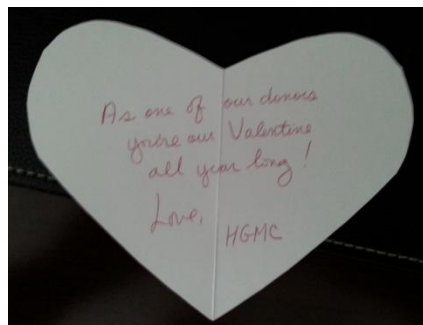 As one of our donors
you're our Valentine
all year long!
Love,
HGMC